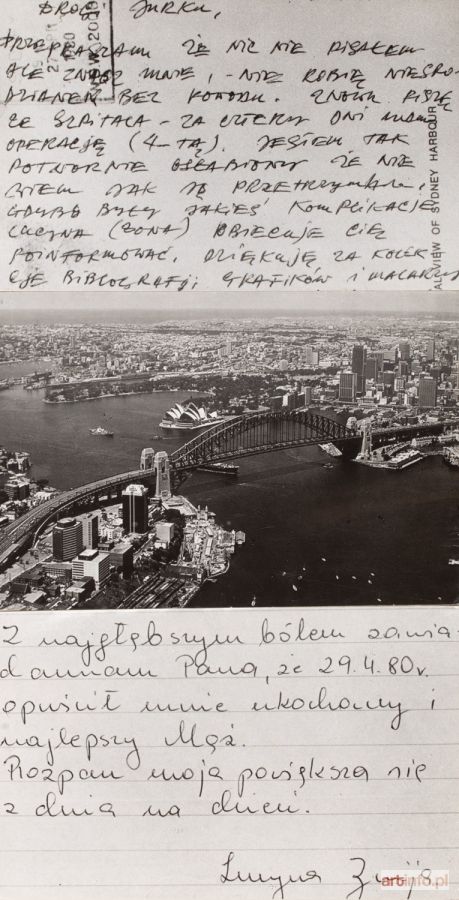 DROGI JURKU,
PRZEPRASZAM ŻE NIC NIE PISAŁEM
ALE ZNASZ MNIE, - NIE ROBIĘ NIESPO
DZIANEK BEZ POWODU. ZNOWU PISZĘ
ZE SZPITALA - ZA CZTERY DNI MAM
OPERACJĘ (4-TĄ). JESTEM TAK
POTWORNIE OSŁABIONY ŻE NIE
WIEM JAK JĄ PRZETRZYMAM.
GDYBY BYŁY JAKIEŚ KOMPLIKACJE
LUCYNA (ŻONA) OBIECUJE CIĘ
POINFORMOWAĆ. DZIĘKUJĘ ZA KOLEK
CJE BIBLIOGRAFJI, GRAFIKÓW I
1980
NSW 200
AL VIEW OF SYDNEY HARBOUR
Z najgłębszym bólem zawia-
damiam Pana, że 29.4.80r.
opuścił mnie ukochany i
najlepszy Mąż.
Rozpacz moja powiększa się
z dnia na dzień.
Lucyna
artinfo.pl